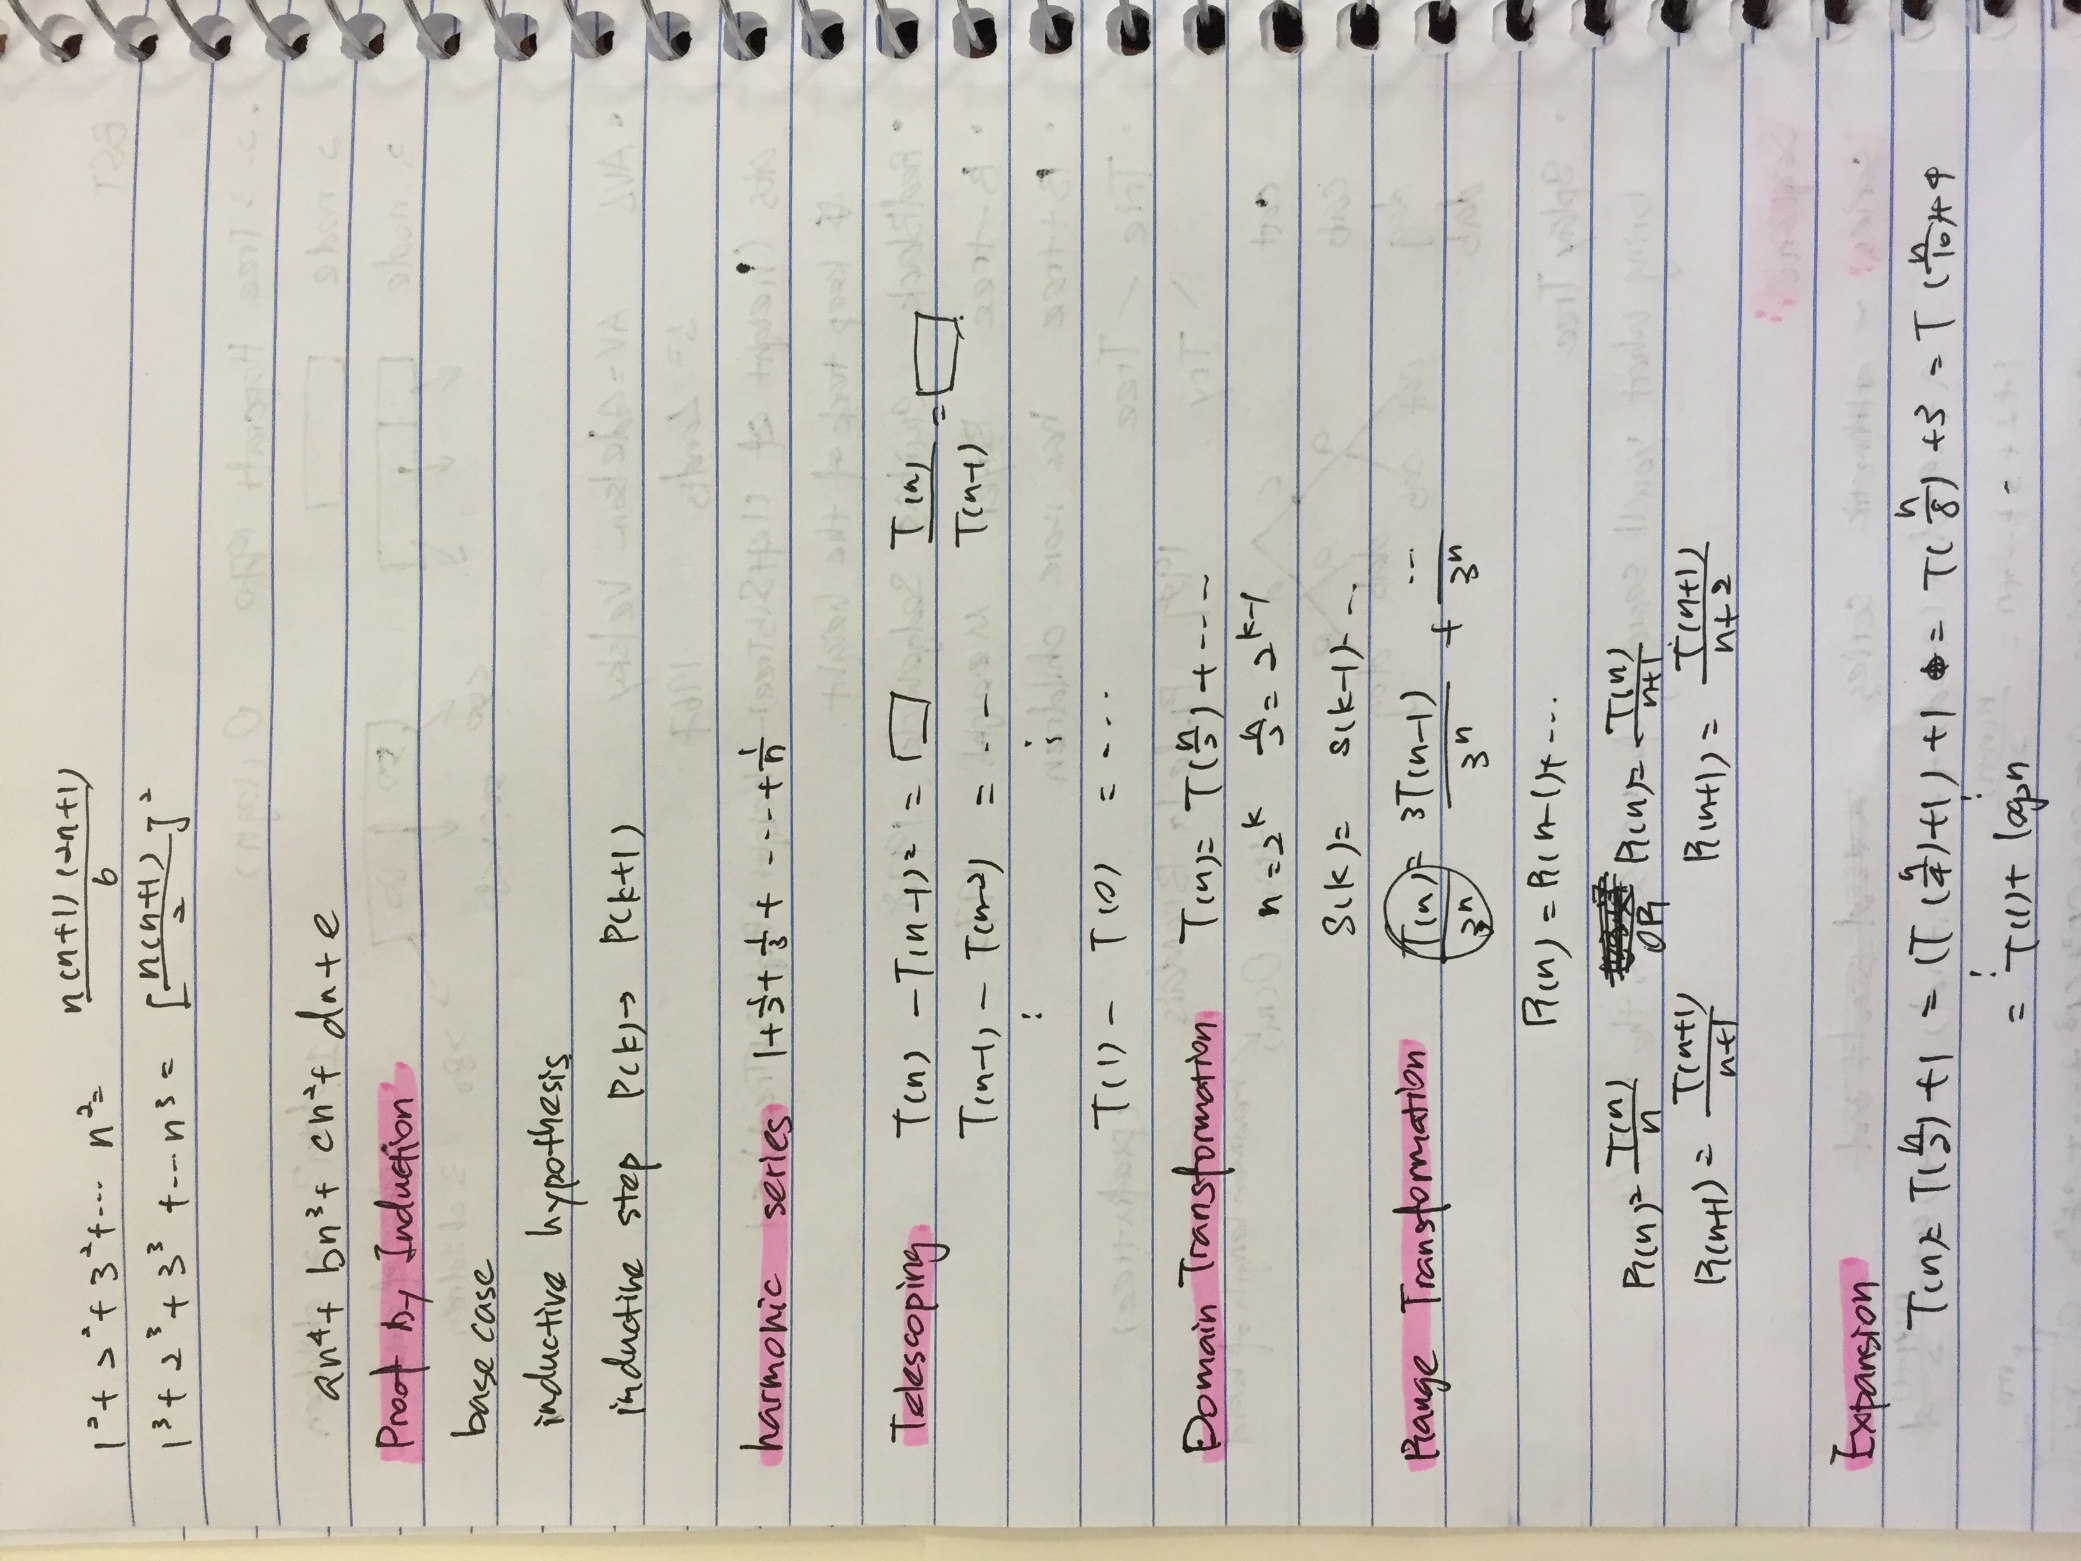 1²+2²+3²+... n²= n(n+1)(2n+1)/6
1³+2³+3³+... n³= [n(n+1)/2]²
an⁴+bn³+cn²+dn+e
Proof by Induction
base case
inductive hypothesis
inductive step P(k)→ P(k+1)
harmonic series 1+½+⅓+...+1/n
Telescoping T(n) - T(n-1) = □ T(n)/T(n-1) = □
T(n-1) - T(n-2) = . -
⋮ ⋮
T(1) - T(0) = ...
Domain Transformation T(n)= T(n/2)+....
n=2^k n/2=2^(k-1)
S(k)= S(k-1)+ ...
Range Transformation T(n)/3ⁿ = 3T(n-1)/3ⁿ + .../3ⁿ
R(n)=R(n-1)+...
R(n)= T(n)/n OR R(n)= T(n)/n+1
R(n+1) = T(n+1)/n+1 R(n+1) = T(n+1)/n+2
Expansion
T(n)= T(n/2)+1 = (T(n/4)+1)+1 = T(n/8)+3 = T(n/16)+4
⋮ ⋮
= T(1)+ log₂n